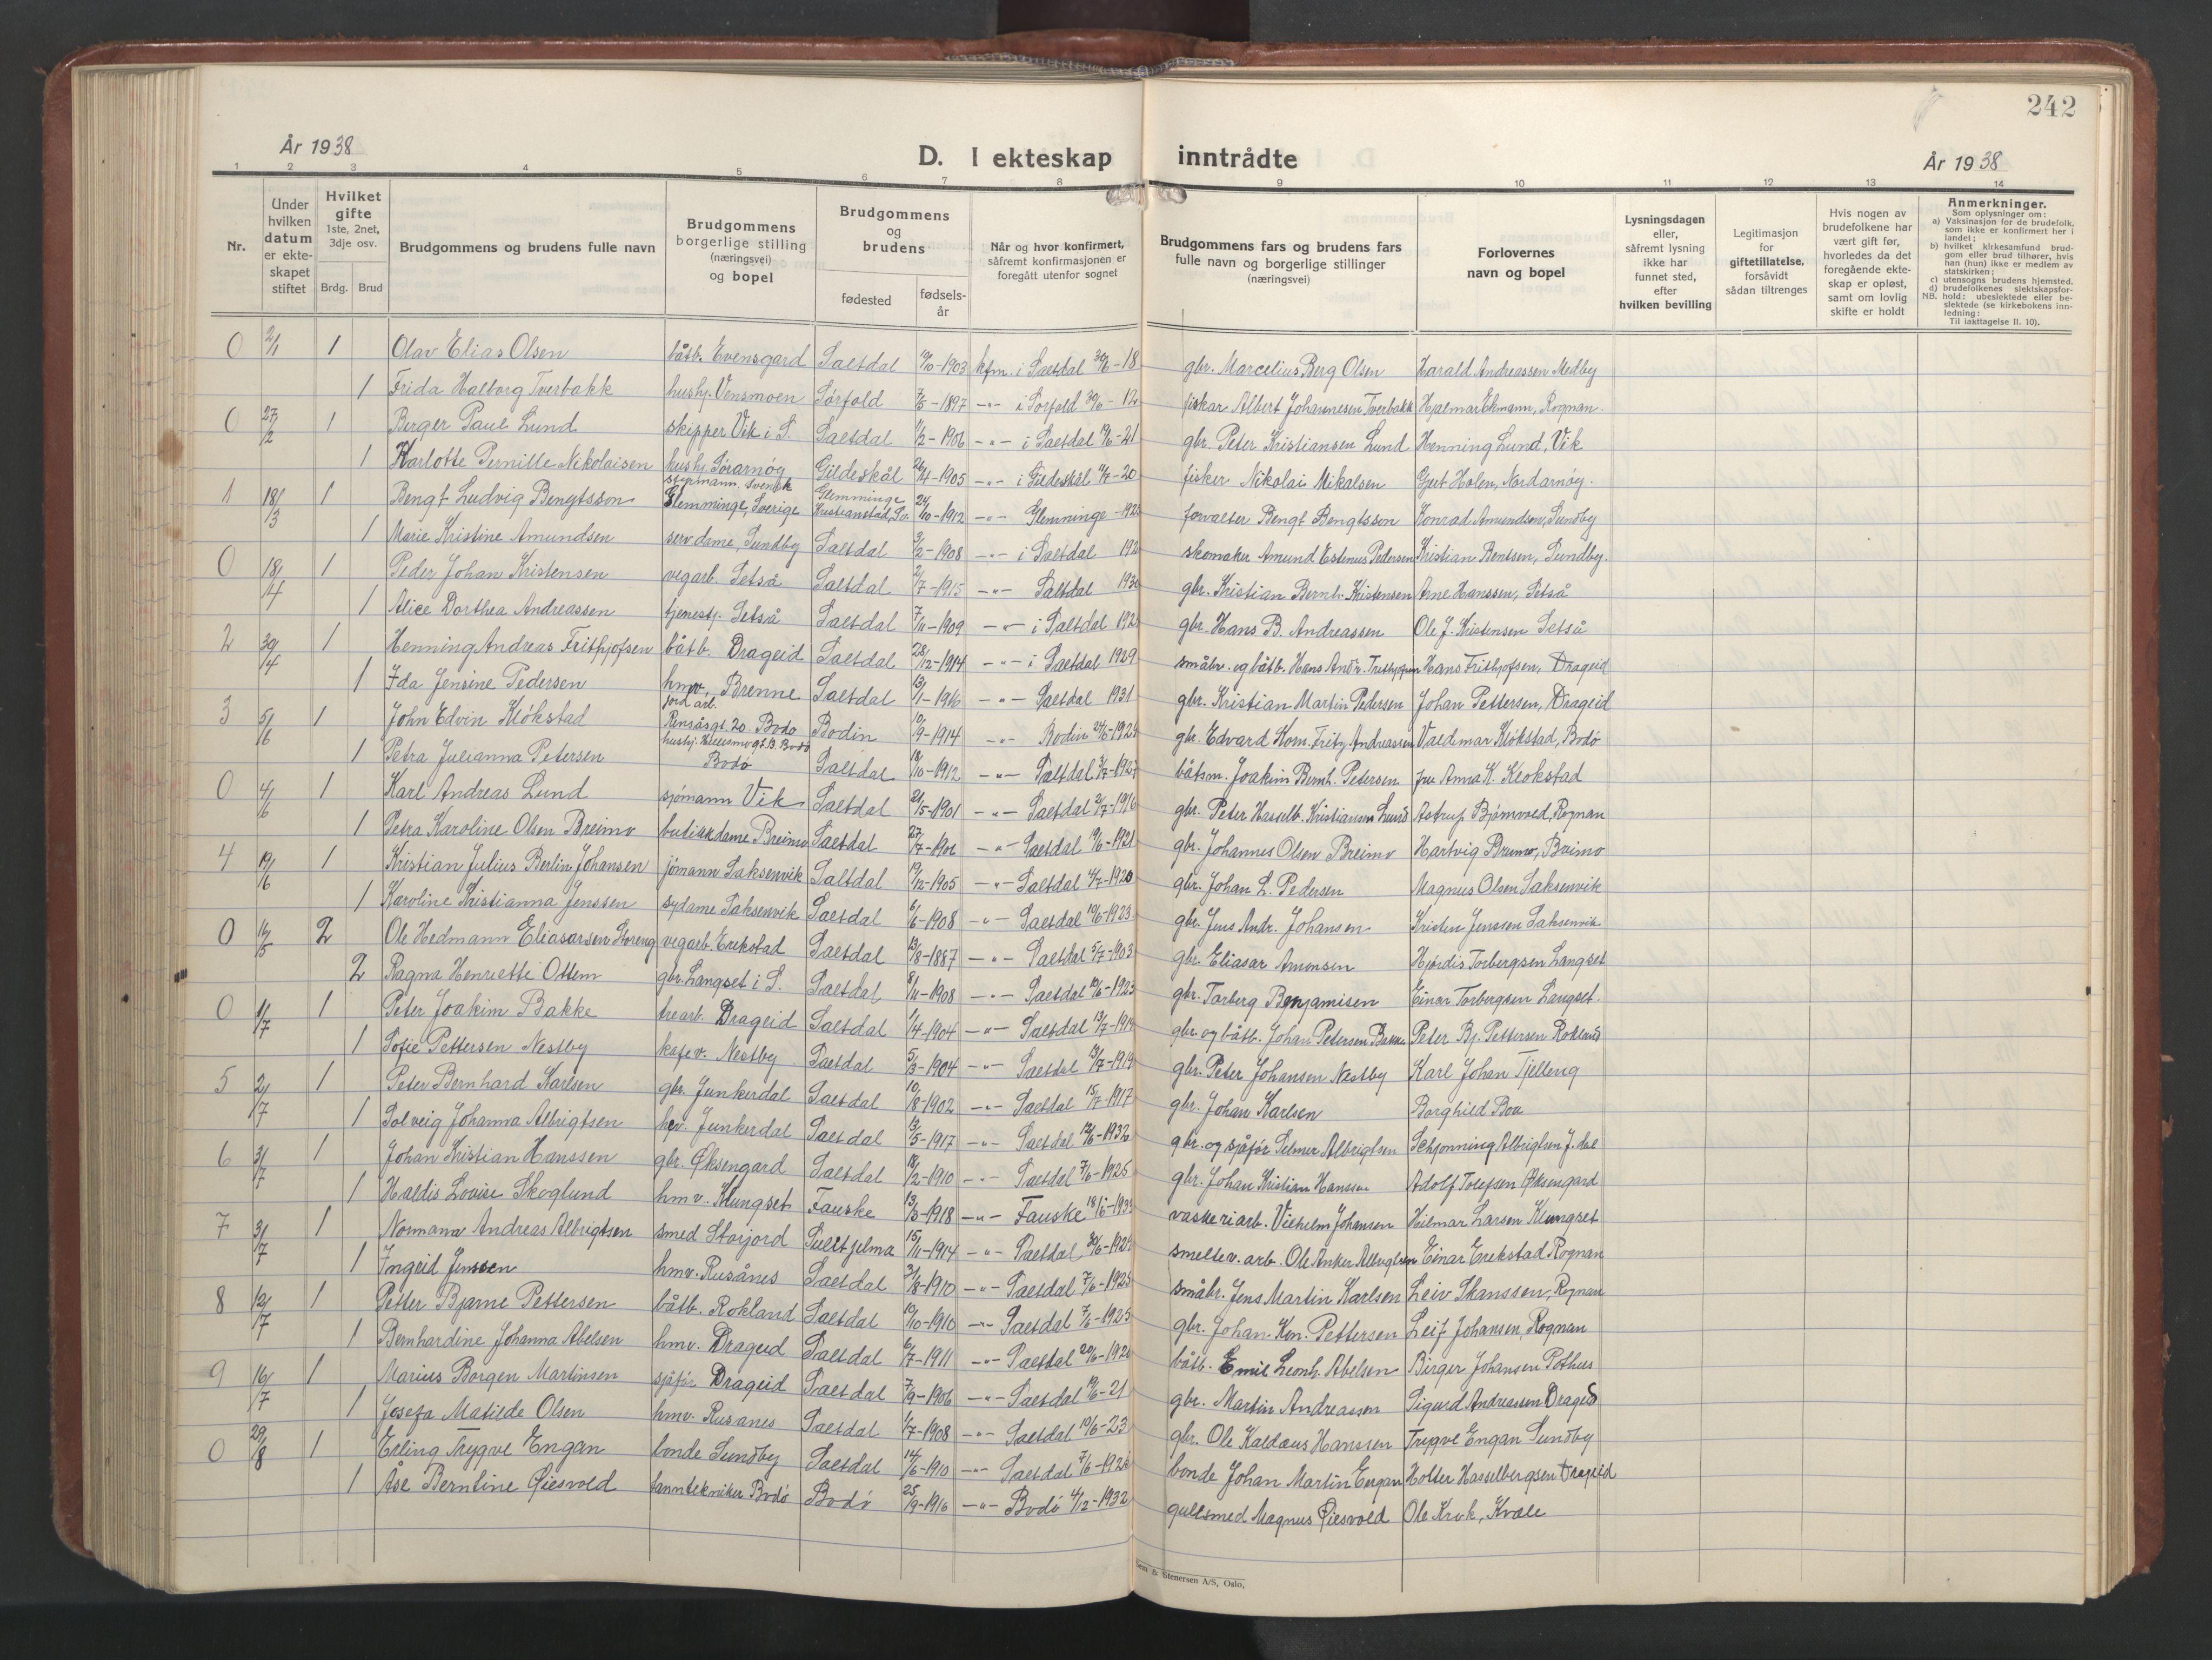 242
År 1938
D. I ekteskap inntrådte
År 1938
1 2 3 4 5 6 7 8 9 10 11 12 13 14
Nr.
Under hvilken datum er ekteskapet stiftet
Hvilket gifte 1ste, 2net, 3dje osv.
Brdg. Brud
Brudgommens og brudens fulle navn
Brudgommens borgerlige stilling (næringsvei) og bopel
Brudgommens og brudens
fødested
fødselsår
Når og hvor konfirmert, såfremt konfirmasjonen er foregått utenfor sognet
Brudgommens fars og brudens fars fulle navn og borgerlige stillinger (næringsvei)
Forlovernes navn og bopel
Lysningsdagen eller, såfremt lysning ikke har funnet sted, efter hvilken bevilling
Legitimasjon for giftetillatelse, forsåvidt sådan tiltrenges
Hvis nogen av brudefolkene har vært gift før, hvorledes da det foregående ekteskap er opløst, samt om lovlig skifte er holdt
Anmerkninger.
Som oplysninger om:
a) Vaksinasjon for de brudefolk, som ikke er konfirmert her i landet;
b) hvilket kirkesamfund brudgom eller brud tilhører, hvis han (hun) ikke er medlem av statskirken;
c) utensogns brudens hjemsted.
d) brudefolkenes slektskapsforhold: ubeslektede eller beslektede (se kirkebokens innledning:
NB. Til iakttagelse II. 10).
0 2/1 1 Olav Elias Olsen båtb. Evensgard Saltdal 10-1903 kfm. i Saltdal 30/6-18 gbr. Marcelius Berg Olsen Harald Andreassen Medby
1 Frida Halborg Tverbakk hushj. Vensmoen Sørfold 7/5-1897 -"- i Sørfold 30/6-12 fiskar Albert Johannesen Tverbakk Hjalmar Ekmann, Rognan.
0 27/2 1 Birger Paul Lund skipper Vik i S. Saltdal 11/2-1906 -"- i Saltdal 19/6-21 gbr. Peter Kristiansen Lund Henning Lund, Vik
1 Karlotte Pernille Nikolaisen hushj. Sørarnøy Gildeskål 26/4-1905 -"- i Gildeskål 11/7-20 fisker Nikolai Mikalsen Gjert Holen, Nordarnøy.
1 18/3 1 Bengt Ludvig Bengtsson styrmann. svensk Glemminge, Sverige Glemminge Kristianstad, Sv. 24/10-1912 -"- Glemminge forvalter Bengt Bengtsson Konrad Amundsen, Sundby
1 Marie Kristine Amundsen serv.dame, Sundby Saltdal 3/2-1908 -"- i Saltdal skomaker Amund Estenus Pedersen Kristian Bentsen, Sundby.
0 18/4 1 Peder Johan Kristensen vegarb. Setså Saltdal 2/7-1915 -"- Saltdal 1930 gbr. Kristian Bernh. Kristensen Arne Hanssen, Setså
1 Alice Dorthea Andreassen tjenestj. Setså Saltdal 7/11-1909 -"- i Saltdal gbr. Hans B. Andreassen Ole J. Kristensen Setså
2 30/4 1 Henning Andreas Frithjofsen båtb. Drageid Saltdal 28/12-1914 -"- i Saltdal 1929 småbr. og båtb. Hans Andr. Frithjofsen Hans Frithjofsen, Drageid
1 Ida Jensine Pedersen hmv. Brenne Saltdal 13/1-1916 -"- Saltdal 1931 gbr. Kristian Martin Pedersen Johan Pettersen, Drageid
3 5/6 1 John Edvin Kløkstad jord arb. Rensåsgt. 20. Bodø Bodin 10/9-1914 -"- Bodin gbr. Edvard Korn. Fritz Andreassen Valdemar Kløkstad, Bodø
1 Petra Julianna Petersen hushj. Bodø Saltdal 18/10-1912 -"- Saltdal 3/7-1927 båtsm. Joakim Bernh. Petersen fru Anna K. Klokstad
0 4/6 1 Karl Andreas Lund sjømann Vik Saltdal 21/5-1901 -"- Saltdal 2/7-1916 gbr. Peter Hasselb. Kristiansen Lund Astrup Bjørnvoed, Rognan
1 Petra Karoline Olsen Breimo butikkdame Breimo Saltdal 27/7 -"- Saltdal 19/6-1921 gbr. Johannes Olsen Breimo Hartvig Breimo, Breimo
4 19/6 1 Kristian Julius Berlin Johansen jømann Saksenvik Saltdal 19/12-1905 -"- Saltdal 4/7-1920 gbr. Johan L. Pedersen Magnus Olsen Saksenvik
1 Karoline Kristianna Jenssen sydame Saksenvik Saltdal 6/6-1908 -"- Saltdal 10/6-1923 gbr. Jens Andr. Johansen Kristen Jenssen Saksenvik
0 2 Ole Hedmann Eliasarsen Storeng vegarb. Erekstad Saltdal 13/8-1887 -"- Saltdal 5/7-1903 gbr. Eliasar Amonsen Hjørdis Torbergsen Langset
2 Ragna Henriette Ottem gbr. Langset i S. Saltdal 8/11-1908 -"- Saltdal 10/6-1923 gbr. Torberg Benjamisen Einar Torbergsen Langset.
0 1/7 1 Peter Joakim Bakke trearb. Drageid Saltdal 1/4-1904 -"- Saltdal 13/7-1919 gbr. og båtb. Johan Petersen Bakke Peter Bj. Pettersen Rokland
1 Sofie Pettersen Nestby kafev. Nestby Saltdal 5/3-1904 -"- Saltdal 13/7-1919 gbr. Peter Johansen Nestby Karl Johan Tjelleng
5 2/7 1 Peter Bernhard Karlsen gbr. Junkerdal Saltdal 10/8-1902 -"- Saltdal 15/7-1917 gbr. Johan Karlsen Borghild Boa
1 Solveig Johanna Albrigtsen hpv. Junkerdal Saltdal 13/5-1917 -"- Saltdal 12/6-1932 gbr. og sjåfør Selmer Albrigtsen Schjønning Albrigtsen J.dal
6 3/7 1 Johan Kristian Hanssen gbr. Øksengard Saltdal 18/2-1910 -"- Saltdal 7/6-1925 gbr. Johan Kristian Hanssen Adolf Tolefsen Øksengard
1 Haldis Louise Skoglund hmv. Klungset Fauske 1918 -"- Fauske vaskeriarb. Vilhelm Johansen Hilmar Larsen Klungset
7 3/7 1 Normann Andreas Albrigtsen smed Storjord Sulitjelma 15/11-1914 -"- Saltdal smeltev. arb. Ole Anker Albrigtsen Einar Erekstad Rognan
1 Ingrid Jenssen hmv. Rusånes Saltdal 3/8-1910 -"- Saltdal 7/6-1925 småbr. Jens Martin Karlsen Leiv Skanssen, Rognan
8 12/7 1 Petter Bjarne Pettersen båtb. Rokland Saltdal 10/10-1910 -"- Saltdal 7/6-1925 gbr. Johan Kon. Pettersen Leif Johansen, Rognan
1 Bernhardine Johanna Abelsen hmv. Drageid Saltdal 6/7-1911 -"- Saltdal båtb. Emil Leonh. Abelsen Birger Johansen Pothus
9 16/7 1 Marius Borgen Martinsen sjåfør Drageid Saltdal 7/9-1906 -"- Saltdal 19/6-21 gbr. Martin Andreassen Sigurd Andreassen Drageid
1 Josefa Matilde Olsen hmv. Rusanes Saltdal 1/7-1908 -"- Saltdal 10/6-23 gbr. Ole Kaldæus Hanssen Trygve Engan Sundby
0 29/8 1 Erling Trygve Engan bonde Sundby Saltdal 14/6-1910 -"- Saltdal 7/6-1926 bonde Johan Martin Engan Holter Hasselbergsen Drageid
1 Åse Berntine Qiesvold tanntekniker Bodø Bodø 25/9-1916 -"- Bodø 4/12-1932 gullsmed Magnus Qiesvold Ole Krok, Kvæle
Sem & Stenersen A/S, Oslo.